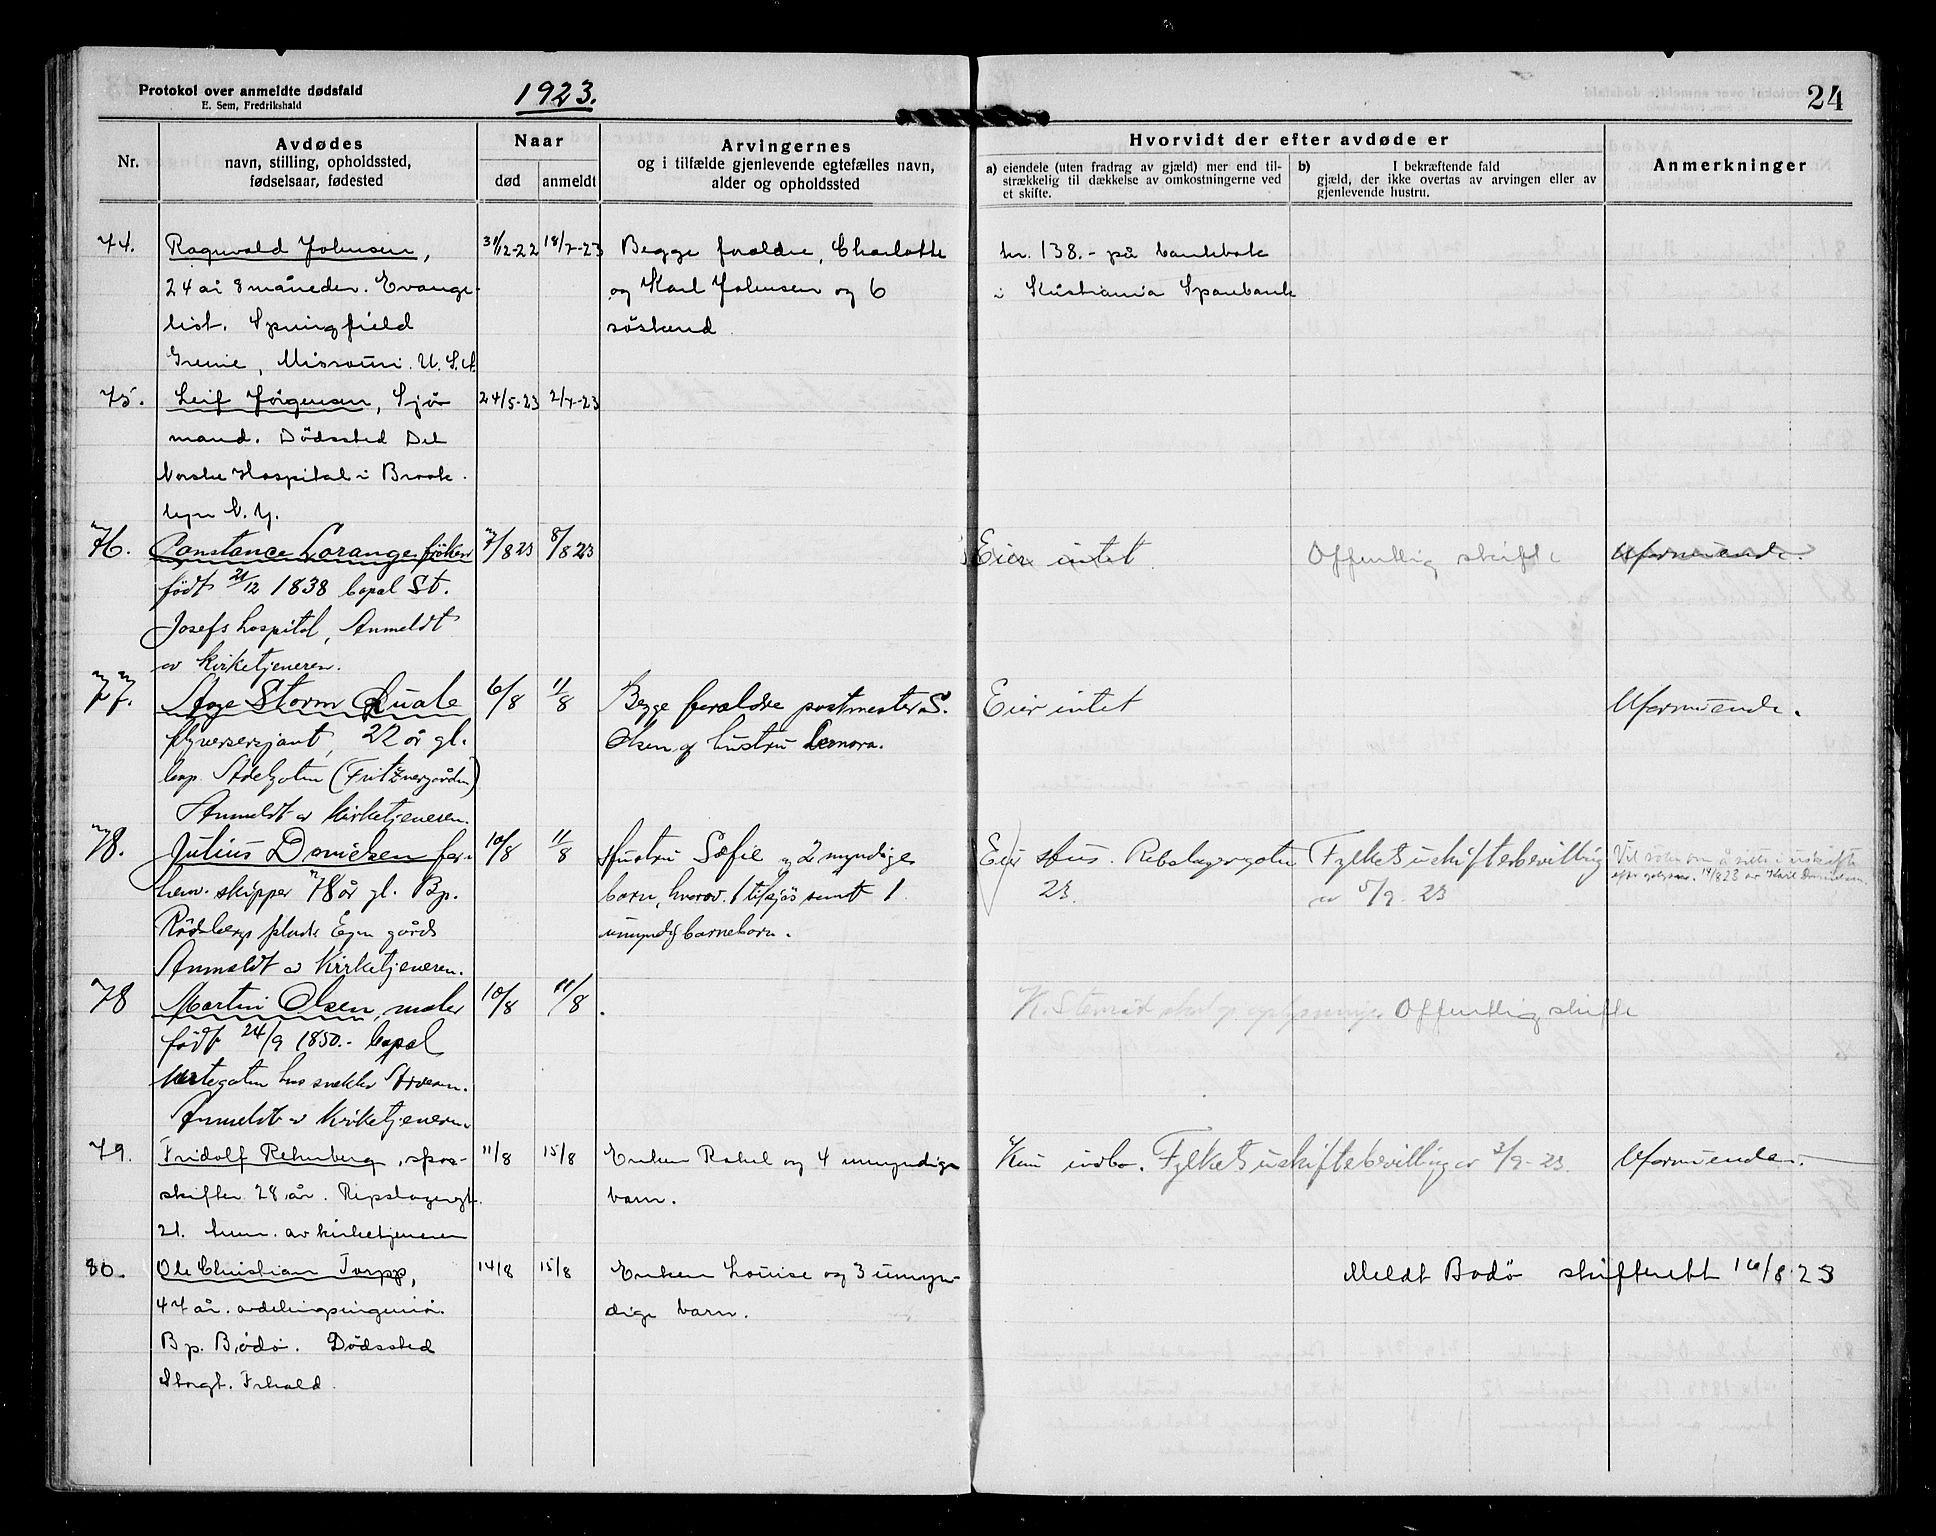 Protokol over anmeldte dødsfald
E. Sem, Fredrikshald
1923.
24
Nr.
Avdødes
navn, stilling, opholdssted,
fødselsaar, fødested
Naar
død
anmeldt
Arvingernes
og i tilfælde gjenlevende egtefælles navn,
alder og opholdssted
Hvorvidt der efter avdøde er
a) eiendele (uten fradrag av gjæld) mer end til-
strækkelig til dækkelse av omkostningerne ved
et skifte.
b) I bekræftende fald
gjæld, der ikke overtas av arvingen eller av
gjenlevende hustru.
Anmerkninger
74.
Ragnvald Johnsen,
24 år 8 måneder. Evange-
list. Springfield
Greene, Missouri. U.S.A.
31/12-22
18/7-23
Begge forældre, Charlotte
og Karl Johnsen og 6
søskend
kr. 138.- på bankbok
i Kristiania Sparebank
75.
Leif Jörgensen, Sjö-
mand. Dödssted Det
Norske Hospital i Brook-
lyn N.Y.
24/5-23
2/7-23
76.
Constance Lorange fröken
födt 21/12 1838 bopæl St.
Josefs hospital, Anmeldt
av kirketjeneren.
7/8 23
8/8 23
Eier intet.
Offentlig skifte
Uformuende.
77.
Aage Storm Quale
flyversersjant, 22 år gl.
bop. Adelgaten (Fritznergården)
Anmeldt av kirketjeneren.
6/8
11/8
Begge forældre postmester S.
Olsen og hustru Leonora.
Eier intet
Uformuende.
78.
Julius Danielsen for-
hen. skipper 78 år gl. Bp.
Rödsberg Egen gård
Anmeldt av kirketjeneren.
10/8
11/8
Hustru Sofie og 2 myndige
barn, hvorav 1 tilsjös samt 1
umyndig barnebarn.
Eier hus. Rebslagergaten
23.
Fylkets uskiftebevilling
av 5/9 23
Vil söke om å sitte i uskifte
efter oplysn. 14/8 23 av Karl Danielsen.
78
Martin Olsen, maler
födt 24/9 1850.- bopæl
Vertegaten hos snekker
Anmeldt av kirketjeneren
10/8
11/8
Offentlig skifte
79.
Fridolf Rehnberg, spor-
skifter 28 år. Ripslagergt.
21. Anm. av kirketjeneren
11/8
15/8
Enken Rakel og 4 umyndige
barn.
Kun indbo. Fylkets uskiftebevilling av 3/9-23.
Uformuende.
80.
Ole Christian Torpp,
47 år. avdelingsingeniör.
Bp. Bodö. Dödssted
Storgt. Frhald.
14/8
15/8
Enken Louise og 3 umyn-
dige barn.
Meldt Bodö skifterett 16/8 23